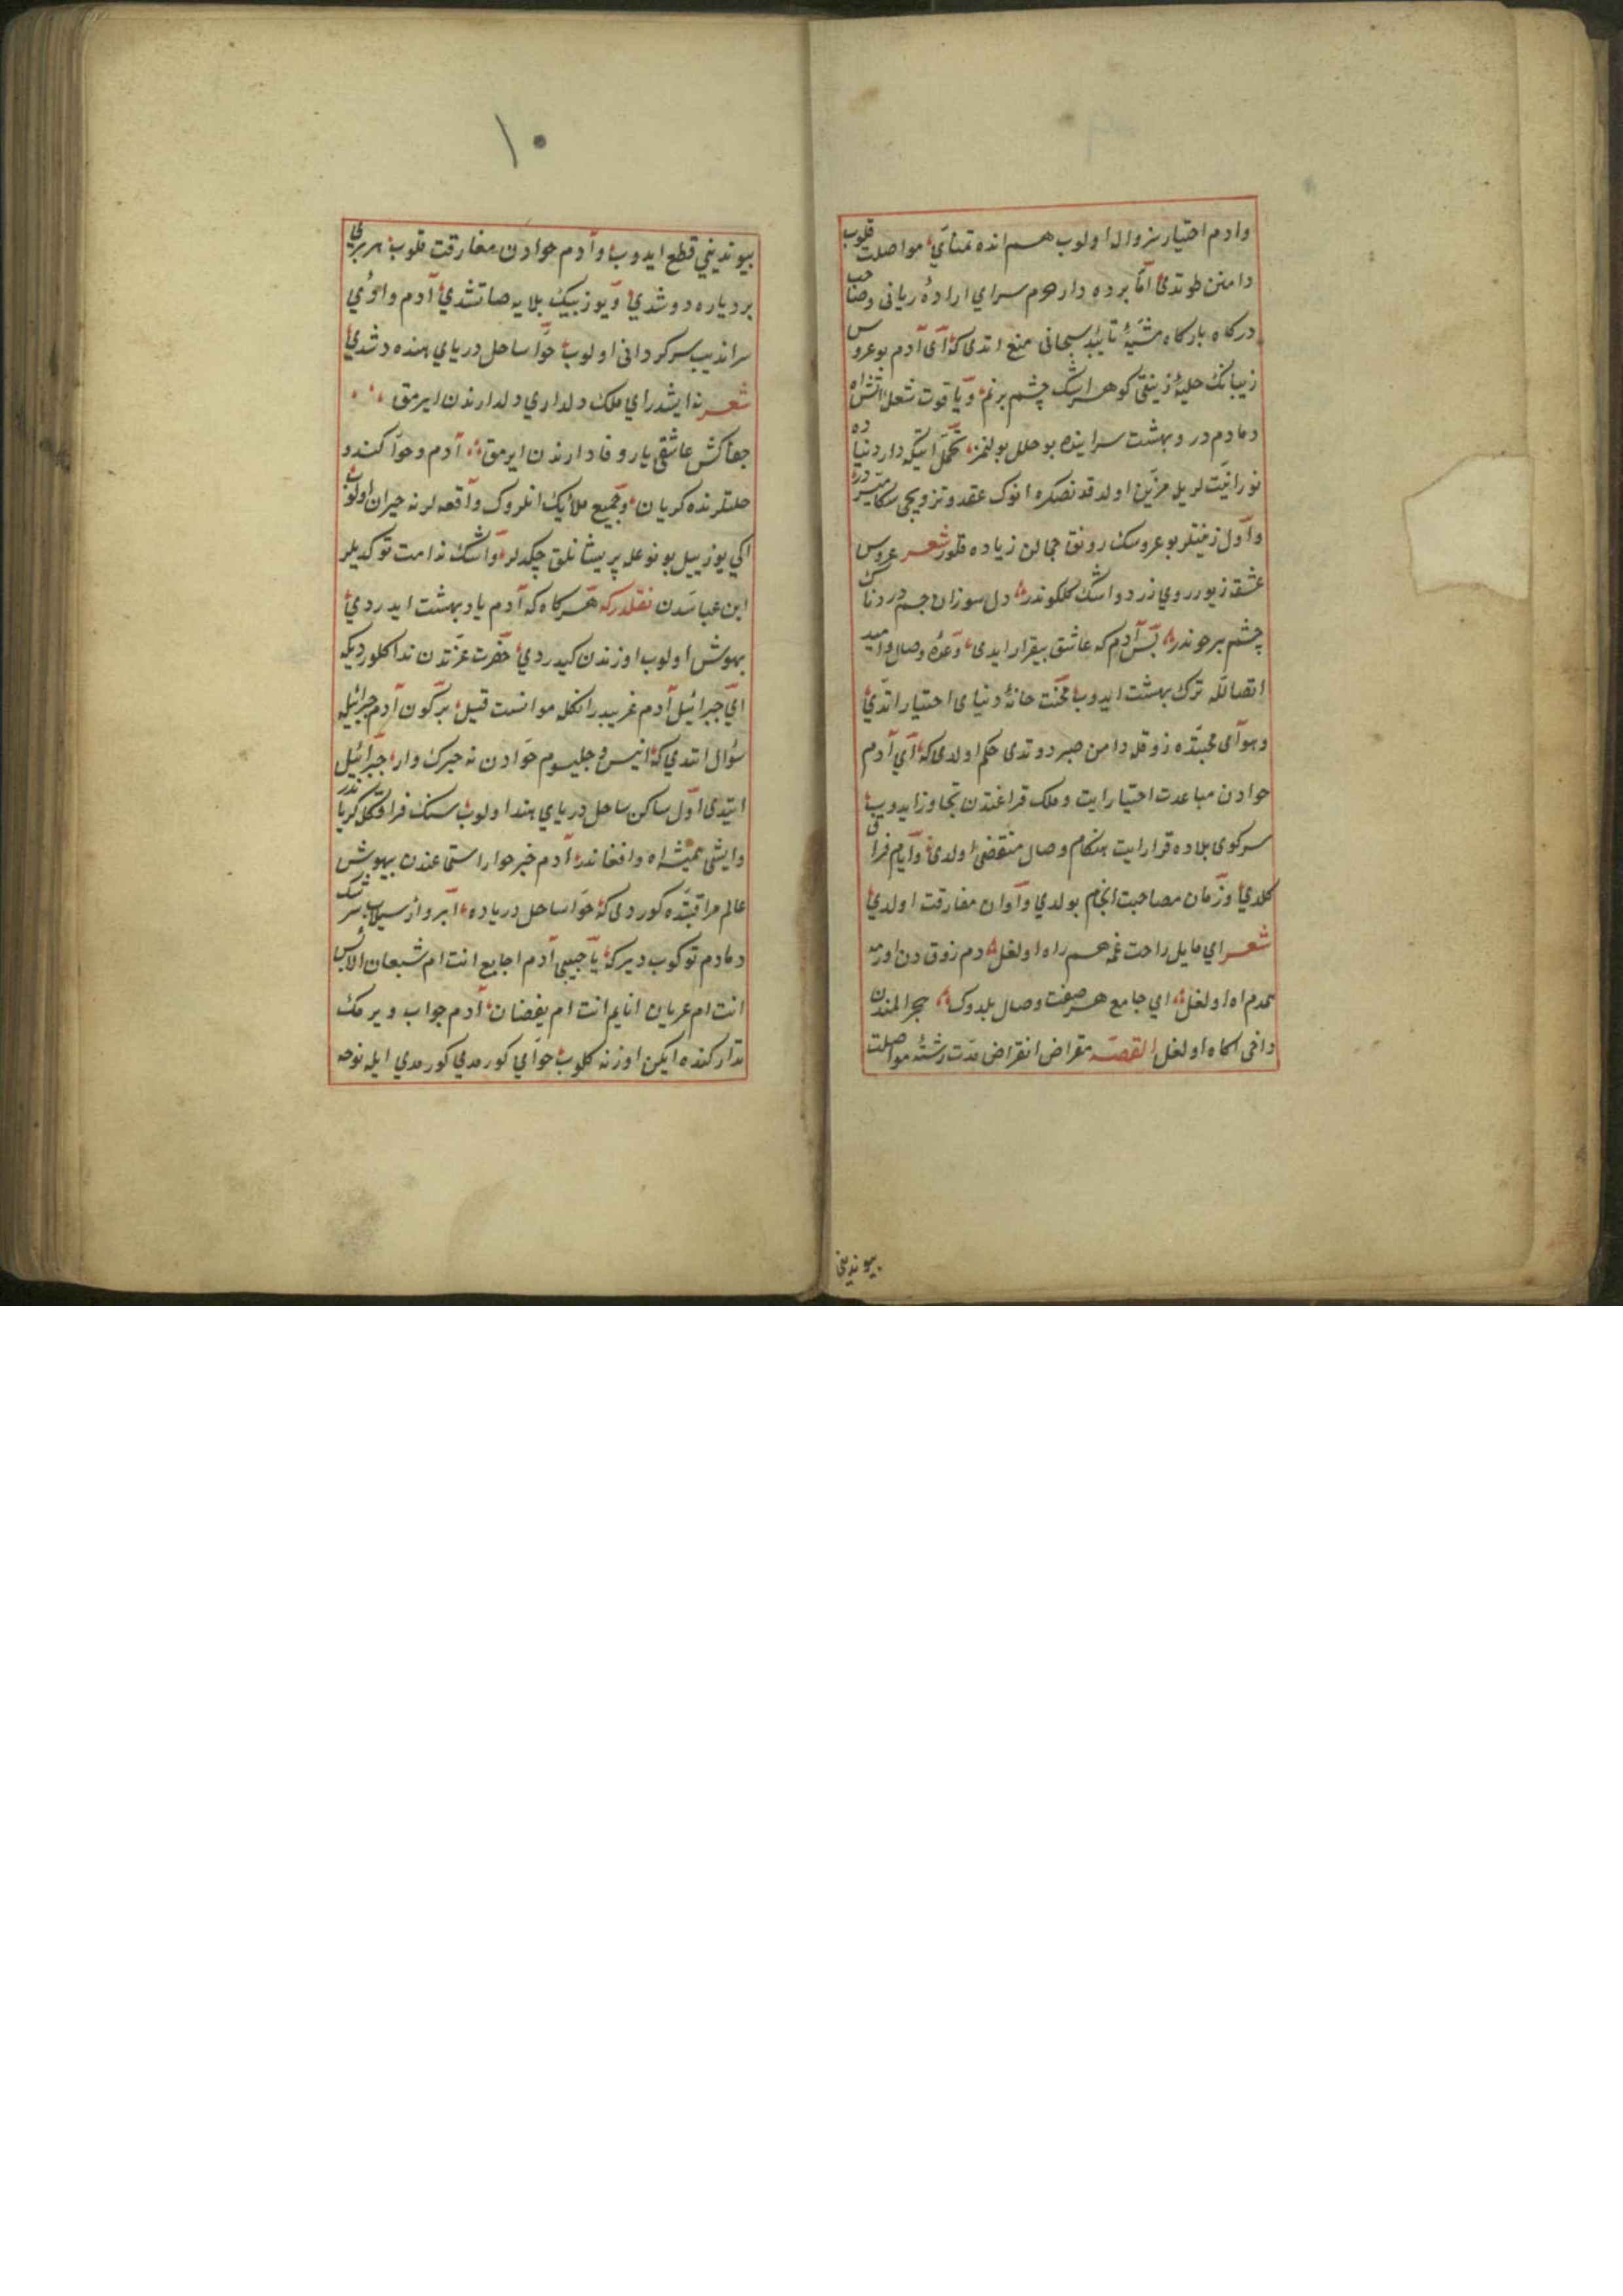 وادم اختیار بزوال اولوب هم اندە تمنای مواصلت قلوب
دامنن طوتدی اما پردە دار حرم سرای ارادۀ ربانی وصاحب
درکاه بارکاه مشیۀ تأیید سبحانی منع اتدی که ای آدم بو عروس
زیبانک حلیۀ زینتی کوهر اشک چشم پرنم ویاقوت شعل آتش اه
دمادم در وبهشت سرایندە بو حلل بولنمز تحمل ایتکه دار دنیادە
نورانیت لریل مزین اولدقدنصکرە انوک عقد وتزویجی سکا میسر در
واول زینتلر بو عروسک رونق جمالن زیاده قلور شعر عروس
عشق زیور روی زرد واشک کلکوندر دل سوزان جسم دردناک
چشم پرخوندر پس آدم که عاشق بیقرار ایدی وعدۀ وصال وامید
اتصالله ترک بهشت ایدوب محنت خانۀ دنیای اختیار اتدی
وهوای محبتده ذوقله دامن صبر دوتدی حکم اولدی که ای آدم
حوادن مباعدت اختیار ایت وملک فراغتدن تجاوز ایدوب
سرکوی بلاده قرار ایت هنکام وصال منقضی اولدی وایام فراق
کلدی وزمان مصاحبت انجام بولدی واوان مفارقت اولدی
شعر ای مایل راحت غمه همراه اولغل دم ذوق دن اورمه
همدم اه اولغل ای جامع هر صفت وصال بلدوک هجر المندن
داخی اکاه اولغل القصه مقراض انقراض مدت رشتۀ مواصلت
بیوندینی
١٠
بیوندینی قطع ایدوب وآدم حوادن مفارقت قلوب هر بری
بر دیاره دوشدی ویوز بیک بلایه صاتشدی آدم وادی
سراندیب سرکردانی اولوب حوا ساحل دریای هنده دشدی
شعر نه ایشدر ای ملک دلداری دلدارندن ایرمق
جفاکش عاشقی یار وفادارندن ایرمق آدم وحوا کندو
حللترنده کریان وجمیع ملائک انلروک واقعه لرنه حیران اولوب
اکی یوز ییل بو نوعله پریشانلق چکدلر واشک ندامت توکدیلر
ابن عباسدن نقلدرکه هر کاه که آدم یاد بهشت ایدردی
بهوش اولوب اوزندن کیدردی حضرت عزتدن ندا کلوردیکه
ای جبرائیل آدم غریبدر انکله موانست قیل بر کون آدم جبرائیله
سؤال اتدی که انیس وجلیسوم حوادن نه خبرک وار جبرائیل
ایتدی اول ساکن ساحل دریای هند اولوب سنک فراقکله کریاندر
وایشی همیشه اه وافغاندر آدم خبر حوار استماعندن بیهوش
عالم مراقبتده کوردی که حوا ساحل دریاده ابرواز سیلاب سرشک
دمادم توکوب دیرکه یا حبیبی آدم اجایع انت ام شبعان الابس
انت ام عریان انایم انت ام یغضان آدم جواب ویرمک
تدارکنده ایکن اوزنه کلوب حوایی کورمدی کورمدی ایله نوحه